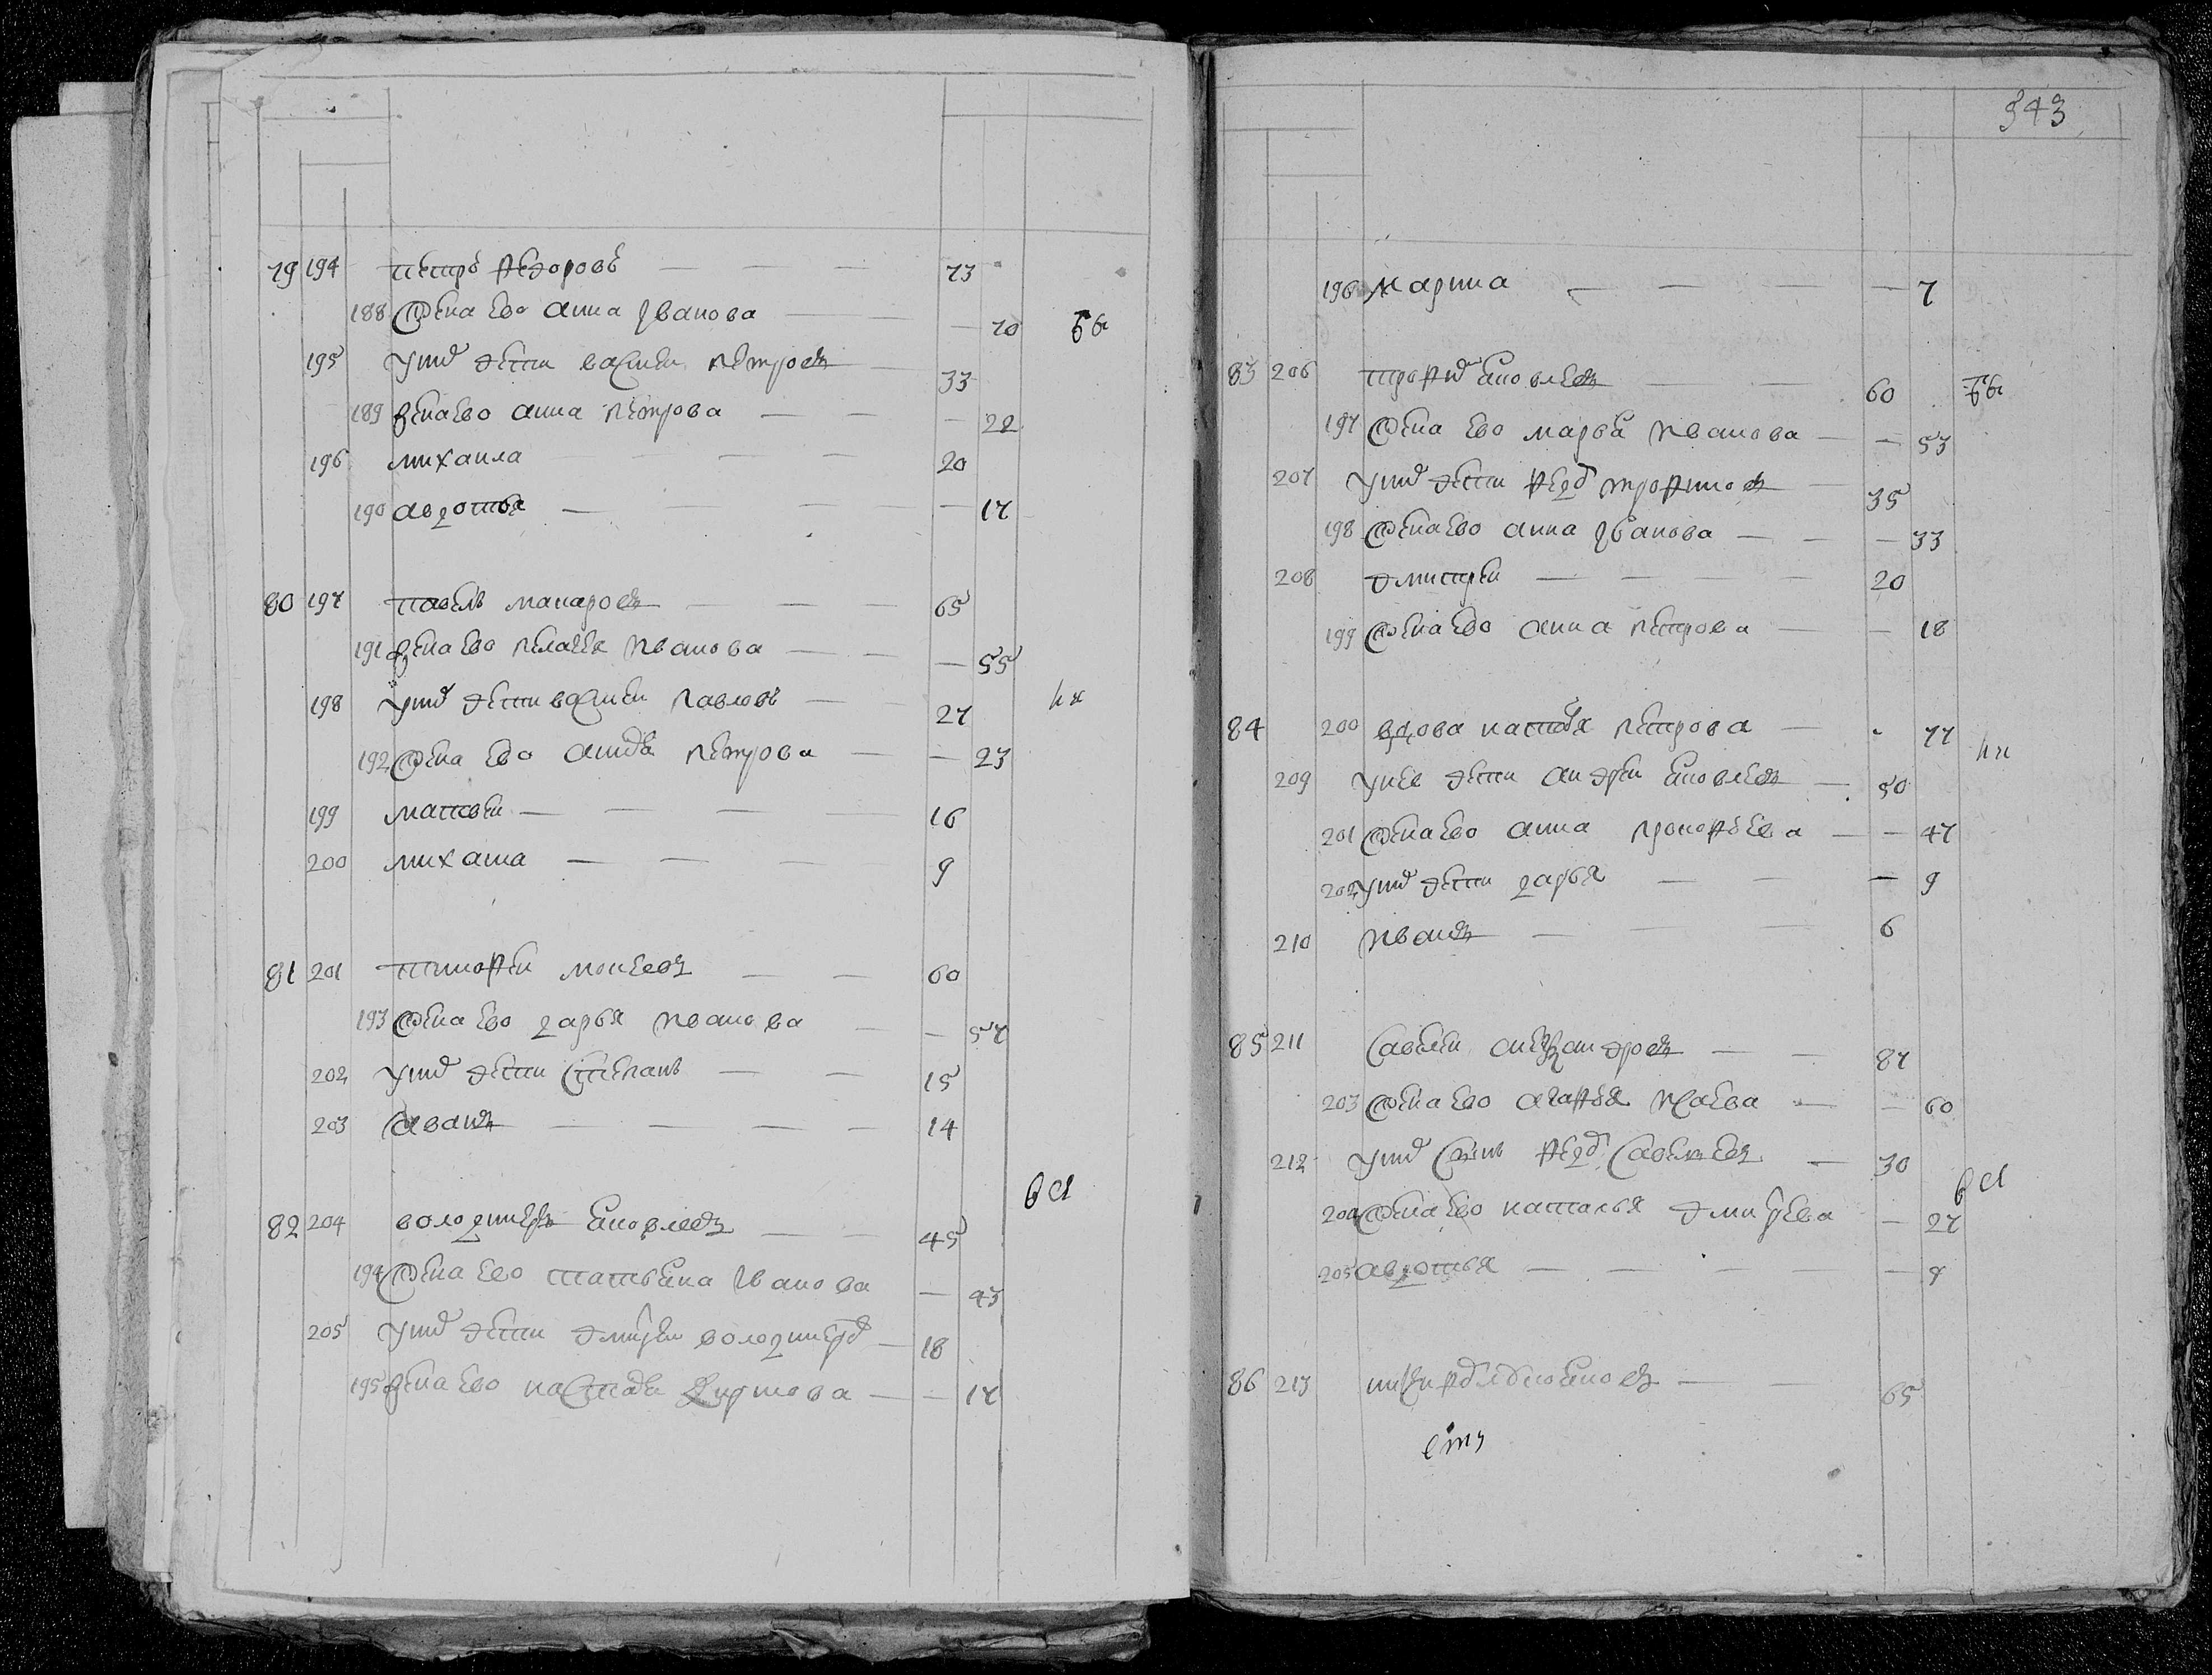 79 194 петръ федоровъ — — — 73
188 жена ево анна Iванова — — — 70 бы
195 у нихъ дети василеи петровъ — 33
189 жена ево анна петрова — — — 22
196 михаила — — — 20
190 авдотья — — — — 17
80 197 павелъ макаровъ — — — 65
191 жена ево пелагея иванова — — — 55
198 у нихъ дети василеи павловъ — — 27 нх
192 жена ево авдотья петрова — — 23
199 матвеи — — — — 16
200 михаила — — — 9
81 201 тимофеи мокеевъ — — 60
193 жена ево дарья иванова — — 57
202 у нихъ дети степанъ — — 15
203 иванъ — — — — 14
вы
82 204 володимеръ яковлевъ — — 45
194 жена ево татьяна Iванова — 43
205 у нихъ дети дмитреи володимеровъ — 18
195 жена ево настасья — — 17
343
196 марина — — — — 7
83 206 трофимъ яковлевъ — — 60 бы
197 жена ево марья иванова — — 53
207 у нихъ дети федоръ трофимовъ — 35
198 жена ево анна Iванова — — — 33
208 дмитреи — — — — 20
199 жена ево анна петрова — — 18
84 200 вдова настасья петрова — 77 нх
209 у нее дети андреи яковлевъ — 50
201 жена ево анна прокофьева — — 47
202 у нихъ дети дарья — — — 9
210 иванъ — — — 6
85 211 Савелеи александровъ — — 87
203 жена ево агафья исаева — — 60
212 у нихъ сынъ федоръ Савельевъ — 30
вы
204 жена ево наталья дмитрева — 27
205 авдотья — — — — — 8
86 213 никифоръ — — 65